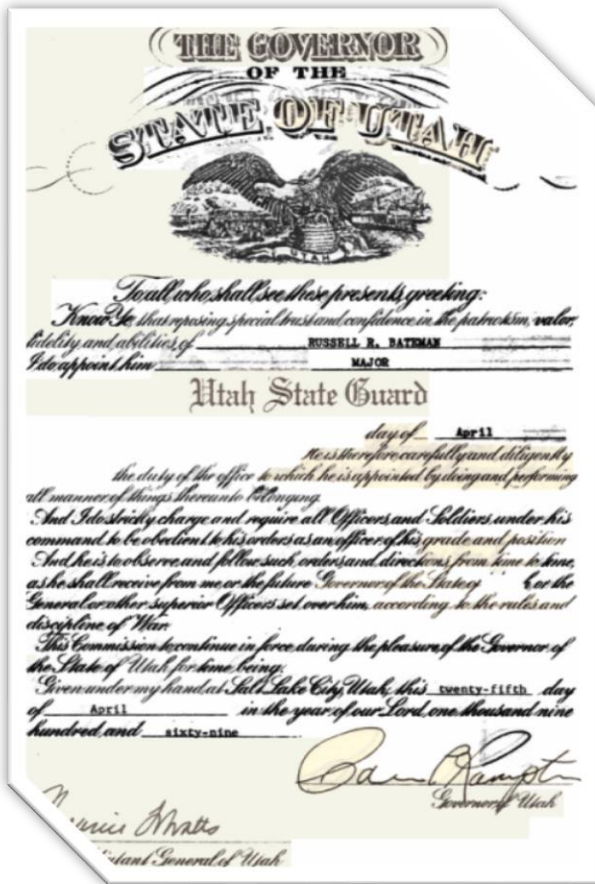 THE GOVERNOR
OF THE
STATE OF UTAH
UTAH
To all, who, shall see these presents, greeting:
Know Ye, that reposing special trust and confidence in the patriotism, valor,
fidelity and abilities of RUSSELL R. BATEMAN
I do appoint him MAJOR
Utah State Guard
day of April
He is therefore carefully and diligently
the duty of the office to which he is appointed by doing and performing
all manner of things thereunto belonging.
And I do strictly charge and require all Officers, and Soldiers, under his
command, to be obedient to his orders as an officer of his grade and position
And he is to observe and follow such orders, and directions, from time to time,
as he shall receive from me, or the future Governor of the State of or the
General or other superior Officers set over him, according to the rules and
discipline of War.
This Commission to continue in force during the pleasure of the Governor of
the State of Utah, for time being.
Given under my hand at Salt Lake City, Utah, this twenty-fifth day
of April in the year of our Lord, one thousand nine
hundred, and sixty-nine
Governor of Utah
Watts
General of Utah